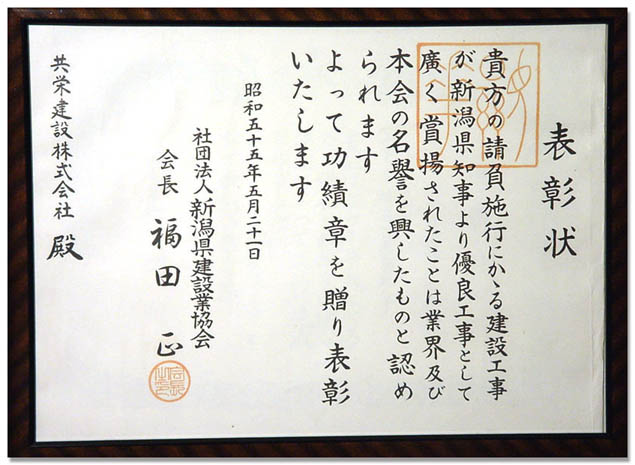 表彰状
貴方の請負施行にかゝる建設工事
が新潟県知事より優良工事として
廣く賞揚されたことは業界及び
本会の名誉を興したものと認め
られます
よって功績章を贈り表彰
いたします
昭和五十五年五月二十一日
社団法人新潟県建設業協会
会長 福田 正
共栄建設株式会社 殿